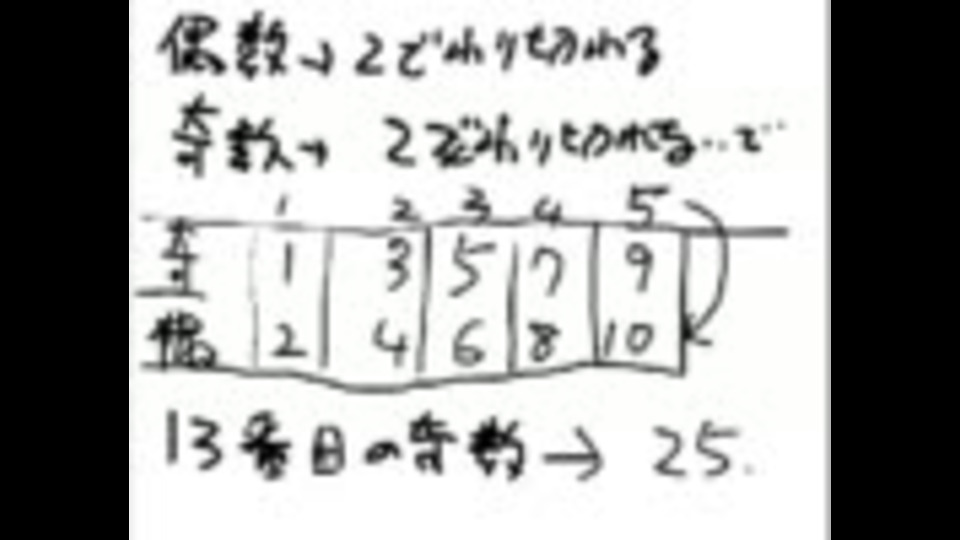 偶数→2でわり切れる
奇数→2でわり切れる…で
1 2 3 4 5
奇 1 3 5 7 9
偶 2 4 6 8 10
13番目の奇数→25.